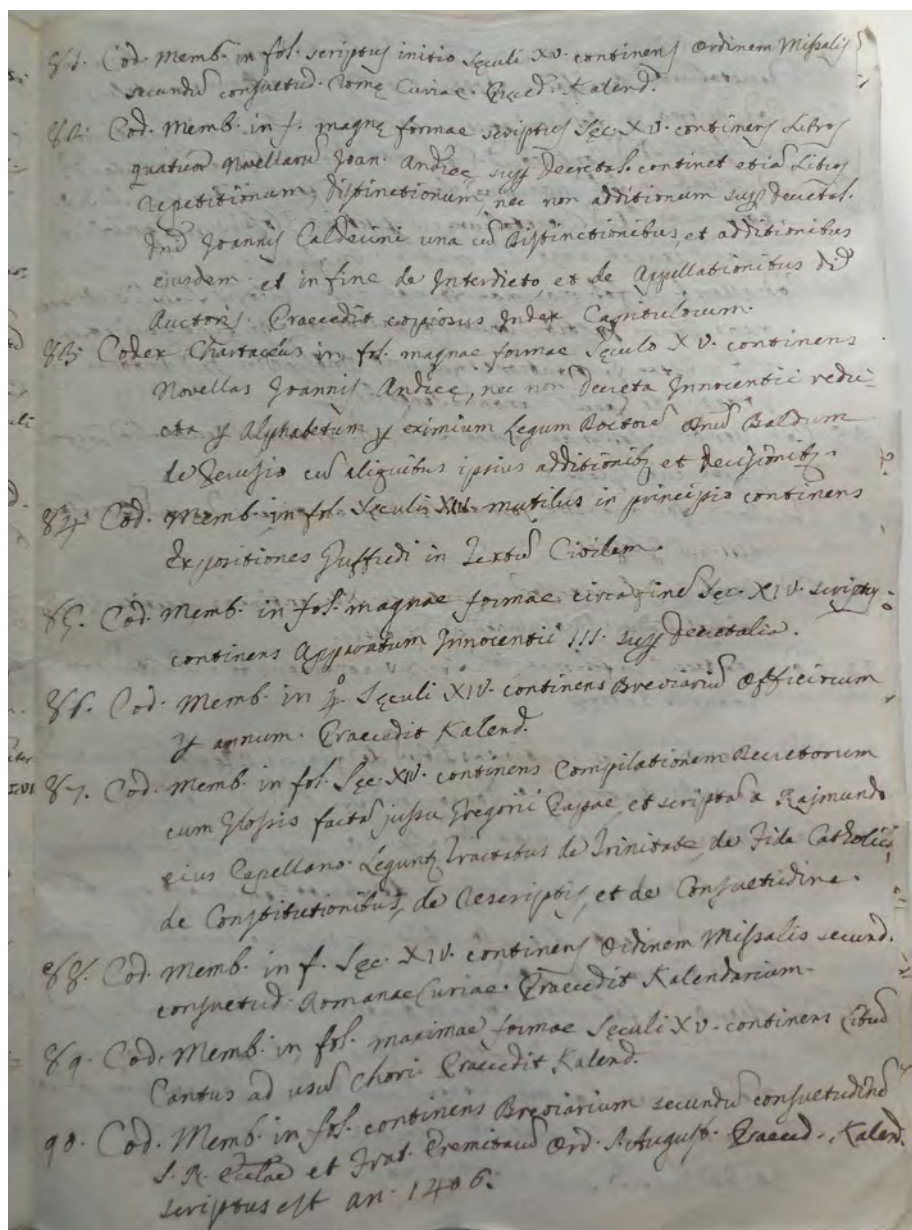 81. Cod. Memb. in fol. scriptus initio Sęculi XV. continens Ordinem Missalis
secundũ consuetud. Romę Curiae. Praeced. Kalend.
82. Cod. Memb. in f. magnę formae scriptus Sęc. XV. continens Libros
quatuor Novellarũ Joan. Andreę sup Decretal. continet etiã Libros
repetitionum, distinctionum, nec non additionum sup Decretal.
Dñi Joannis Calderini una cũ distinctionibus, et additionibus
eiusdem. et in fine de Interdicto, et de Appellationibus
Auctoris. Praecedit copiosus Index Capitulorum.
83. Codex Chartaceus in fol. magnae formae Sęculo XV. continens
Novellas Joannis Andreę, nec non Decreta Innocentii redu-
cta p Alphabetum p eximium Legum Doctorẽ Dnũ Baldum
de Perusio cũ aliquibus ipsius additionibȝ et decisionibȝ.
84. Cod. Memb. in fol. Sęculi XIV. mutilus in principio continens
Expositiones in Textũ Civilem.
85. Cod. Memb. in fol. magnae formae circa finẽ Sęc. XIV. scriptus
continens Apparatum Innocentii III. sup Decretalia.
86. Cod. Memb. in 4º Sęculi XIV. continens Breviariũ Officiorum
p annum. Praecedit Kalend.
87. Cod. Memb. in fol. Sęc. XIV. continens Compilationem Decretorum
cum Glossis factã jussu Gregorii Papae, et scriptã a Rajmundo
eius Capellano. Leguntȝ Tractatus de Trinitate, de Fide Catholica,
de Constitutionibus, de Rescriptis, et de Consuetudine.
88. Cod. Memb. in f. Sęc. XIV. continens Ordinem Missalis secund.
consuetud. Romanae Curiae. Praecedit Kalendarium.
89. Cod. Memb. in fol. maximae formae Sęculi XV. continens Librũ
Cantus ad usũ Chori. Praecedit Kalend.
90. Cod. Memb. in fol. continens Breviarium secundũ consuetudinẽ
S. R. Eccłae et Frat. Eremitarũ Ord. S. August. Praeced. Kalend.
scriptus est an. 1406.